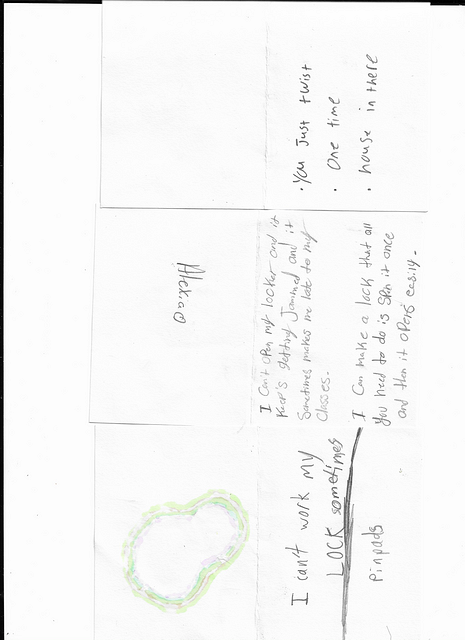 I can't work my
LOCK sometimes
Pinpads
I Can't open my locker and it
Keep's getting Jammed and it
Sometimes makes me late to my
Classes.
I Can make a lock that all
you need to do is it once
and then it opens easily.
• You Just twist
• One time
• house in there